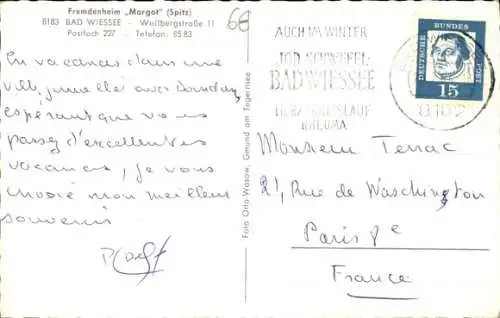 Fremdenheim „Margot" (Spitz)
8183 BAD WIESSEE - Wallbergstraße 11
Postfach 227 - Telefon: 85 83
66
En vacances dans une
ville jumelée avec
espérant que vous
passez d'excellentes
vacances, je vous
mon meilleur
souvenir
Foto Otto Wasow, Gmund am Tegernsee
AUCH IM WINTER
JOD-SCHWEFEL
BAD WIESSEE
HERZ KREISLAUF
RHEUMA
DEUTSCHE BUNDESPOST
15
8182
Monsieur Terrac
21, Rue de Waschington
Paris 8e
France